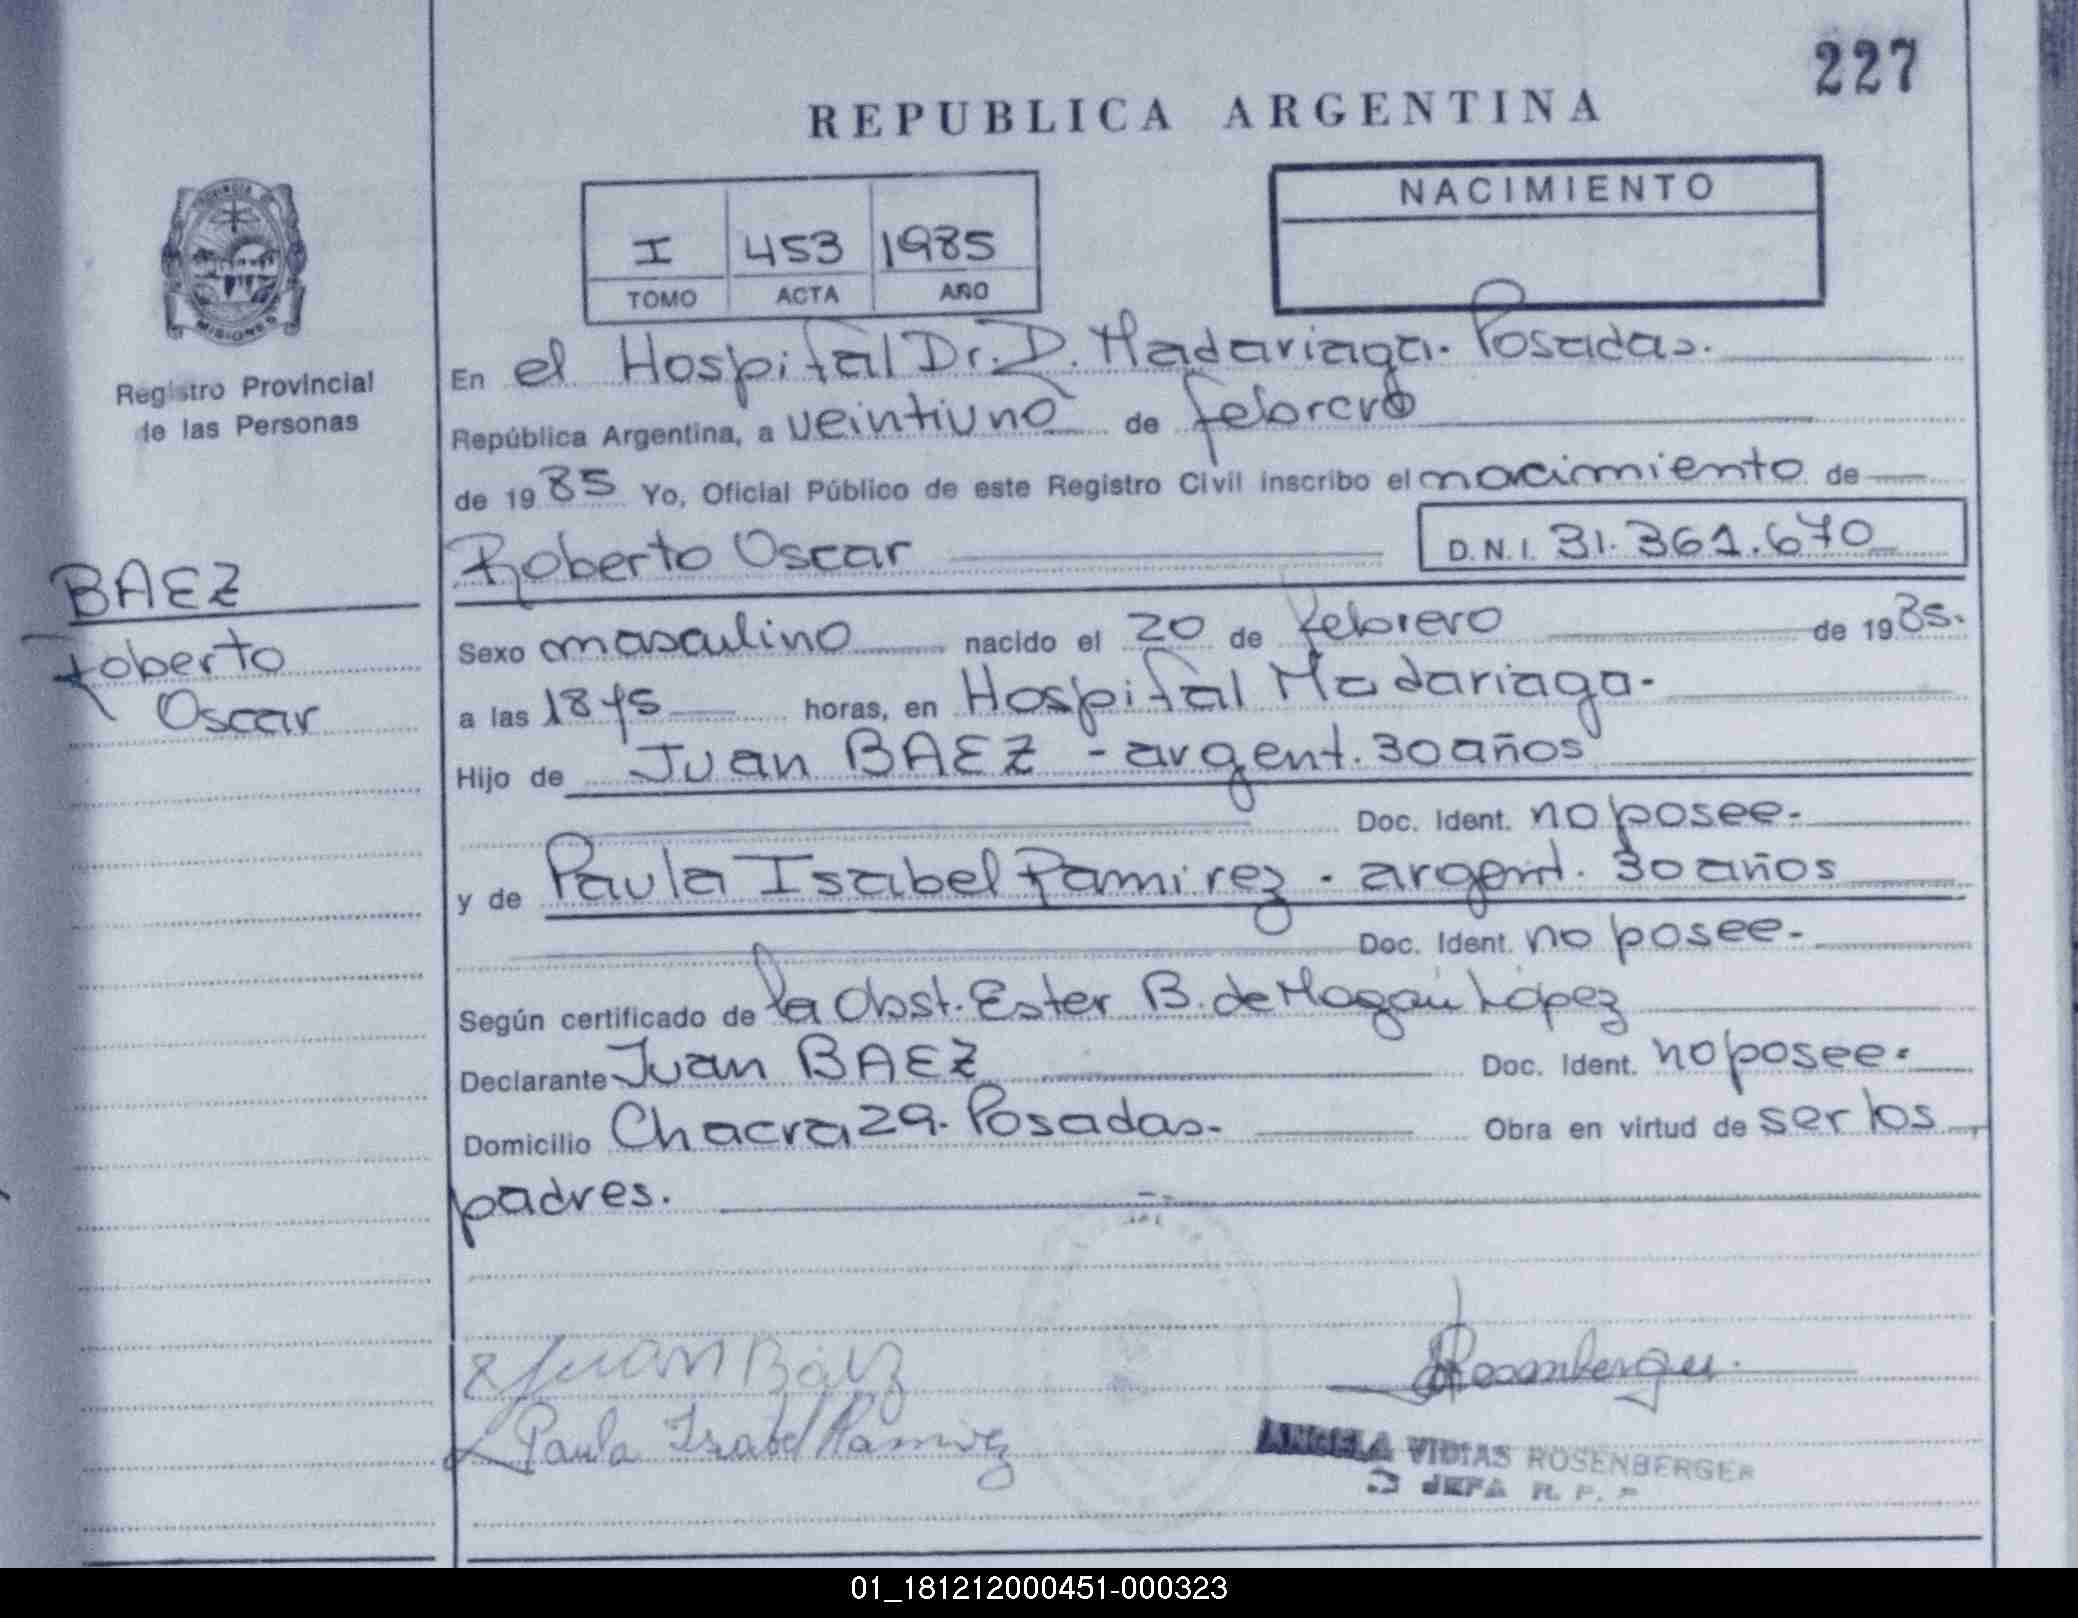 227
REPUBLICA ARGENTINA
I 453 1985
TOMO ACTA AÑO
NACIMIENTO
PROVINCIA DE
MISIONES
Registro Provincial
de las Personas
En el Hospital Dr. D. Madariaga. Posadas.
República Argentina, a veintiuno de febrero
de 1985 Yo, Oficial Público de este Registro Civil inscribo el nacimiento de
Roberto Oscar D.N.I. 31.361.670
BAEZ
Roberto
Oscar
Sexo masculino nacido el 20 de febrero de 1985.
a las 1845 horas, en Hospital Madariaga.
Hijo de Juan BAEZ - argent. 30 años
Doc. Ident. no posee.
y de Paula Isabel Ramirez. argent. 30 años
Doc. Ident. no posee.
Según certificado de la Obst. Ester B. de López
Declarante Juan BAEZ Doc. Ident. no posee.
Domicilio Chacra 29. Posadas. Obra en virtud de ser los
padres.
Juan Báez
Paula Isabel Ramirez
Rosenberger
ANGELA VIDIAS ROSENBERGER
JEFA R. P. P
01_181212000451-000323